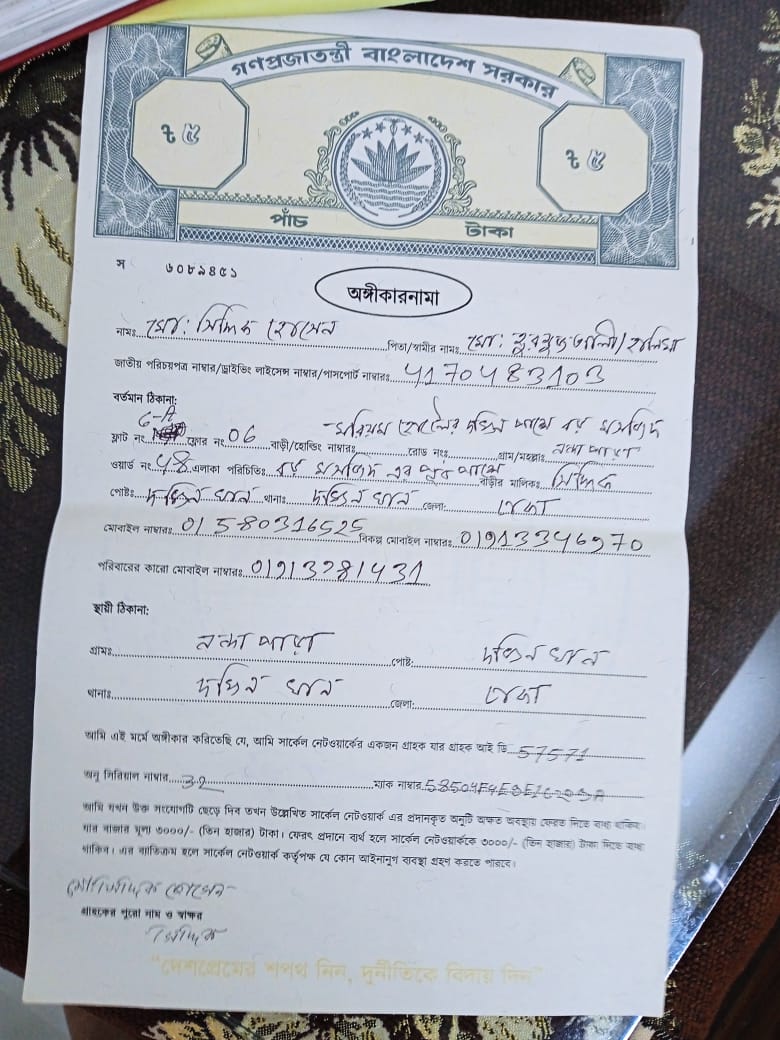 গণপ্রজাতন্ত্রী বাংলাদেশ সরকার
৳ ৫ ৳ ৫
পাঁচ টাকা
স ৬০৮৯৪৫১
অঙ্গীকারনামা
নামঃ মো: সিদ্দিক হোসেন পিতা/স্বামীর নামঃ মো:
জাতীয় পরিচয়পত্র নাম্বার/ড্রাইভিং লাইসেন্স নাম্বার/পাসপোর্ট নাম্বারঃ 4170483103
বর্তমান ঠিকানা:
6-A
ফ্লাট নং ফ্লোর নং 06 বাড়ী/হোল্ডিং নাম্বারঃ দক্ষিন পাশে বড় মসজিদ রোড নংঃ গ্রাম/মহল্লাঃ
ওয়ার্ড নং 48 এলাকা পরিচিতিঃ বড় মসজিদ এর পাশে বাড়ীর মালিকঃ সিদ্দিক
পোষ্টঃ দক্ষিন খান থানাঃ দক্ষিন খান জেলা: ঢাকা
মোবাইল নাম্বারঃ 01580316525 বিকল্প মোবাইল নাম্বারঃ 01913346970
পরিবারের কারো মোবাইল নাম্বারঃ 01913281431
স্থায়ী ঠিকানা:
গ্রামঃ পোষ্ট: দক্ষিন খান
থানাঃ দক্ষিন খান জেলা: ঢাকা
আমি এই মর্মে অঙ্গীকার করিতেছি যে, আমি সার্কেল নেটওয়ার্কের একজন গ্রাহক যার গ্রাহক আই ডি 57571
অনু সিরিয়াল নাম্বার 32 ম্যাক নাম্বার
আমি যখন উক্ত সংযোগটি ছেড়ে দিব তখন উল্লেখিত সার্কেল নেটওয়ার্ক এর প্রদানকৃত অনুটি অক্ষত অবস্থায় ফেরত দিতে বাধ্য থাকিব।
যার বাজার মূল্য ৩০০০/- (তিন হাজার) টাকা। ফেরৎ প্রদানে ব্যর্থ হলে সার্কেল নেটওয়ার্ককে ৩০০০/- (তিন হাজার) টাকা দিতে বাধ্য
থাকিব। এর ব্যতিক্রম হলে সার্কেল নেটওয়ার্ক কর্তৃপক্ষ যে কোন আইনানুগ ব্যবস্থা গ্রহণ করতে পারবে।
মোঃ সিদ্দিক হোসেন
গ্রাহকের পুরো নাম ও স্বাক্ষর
সিদ্দিক
"দেশপ্রেমের শপথ নিন, দুর্নীতিকে বিদায় দিন"